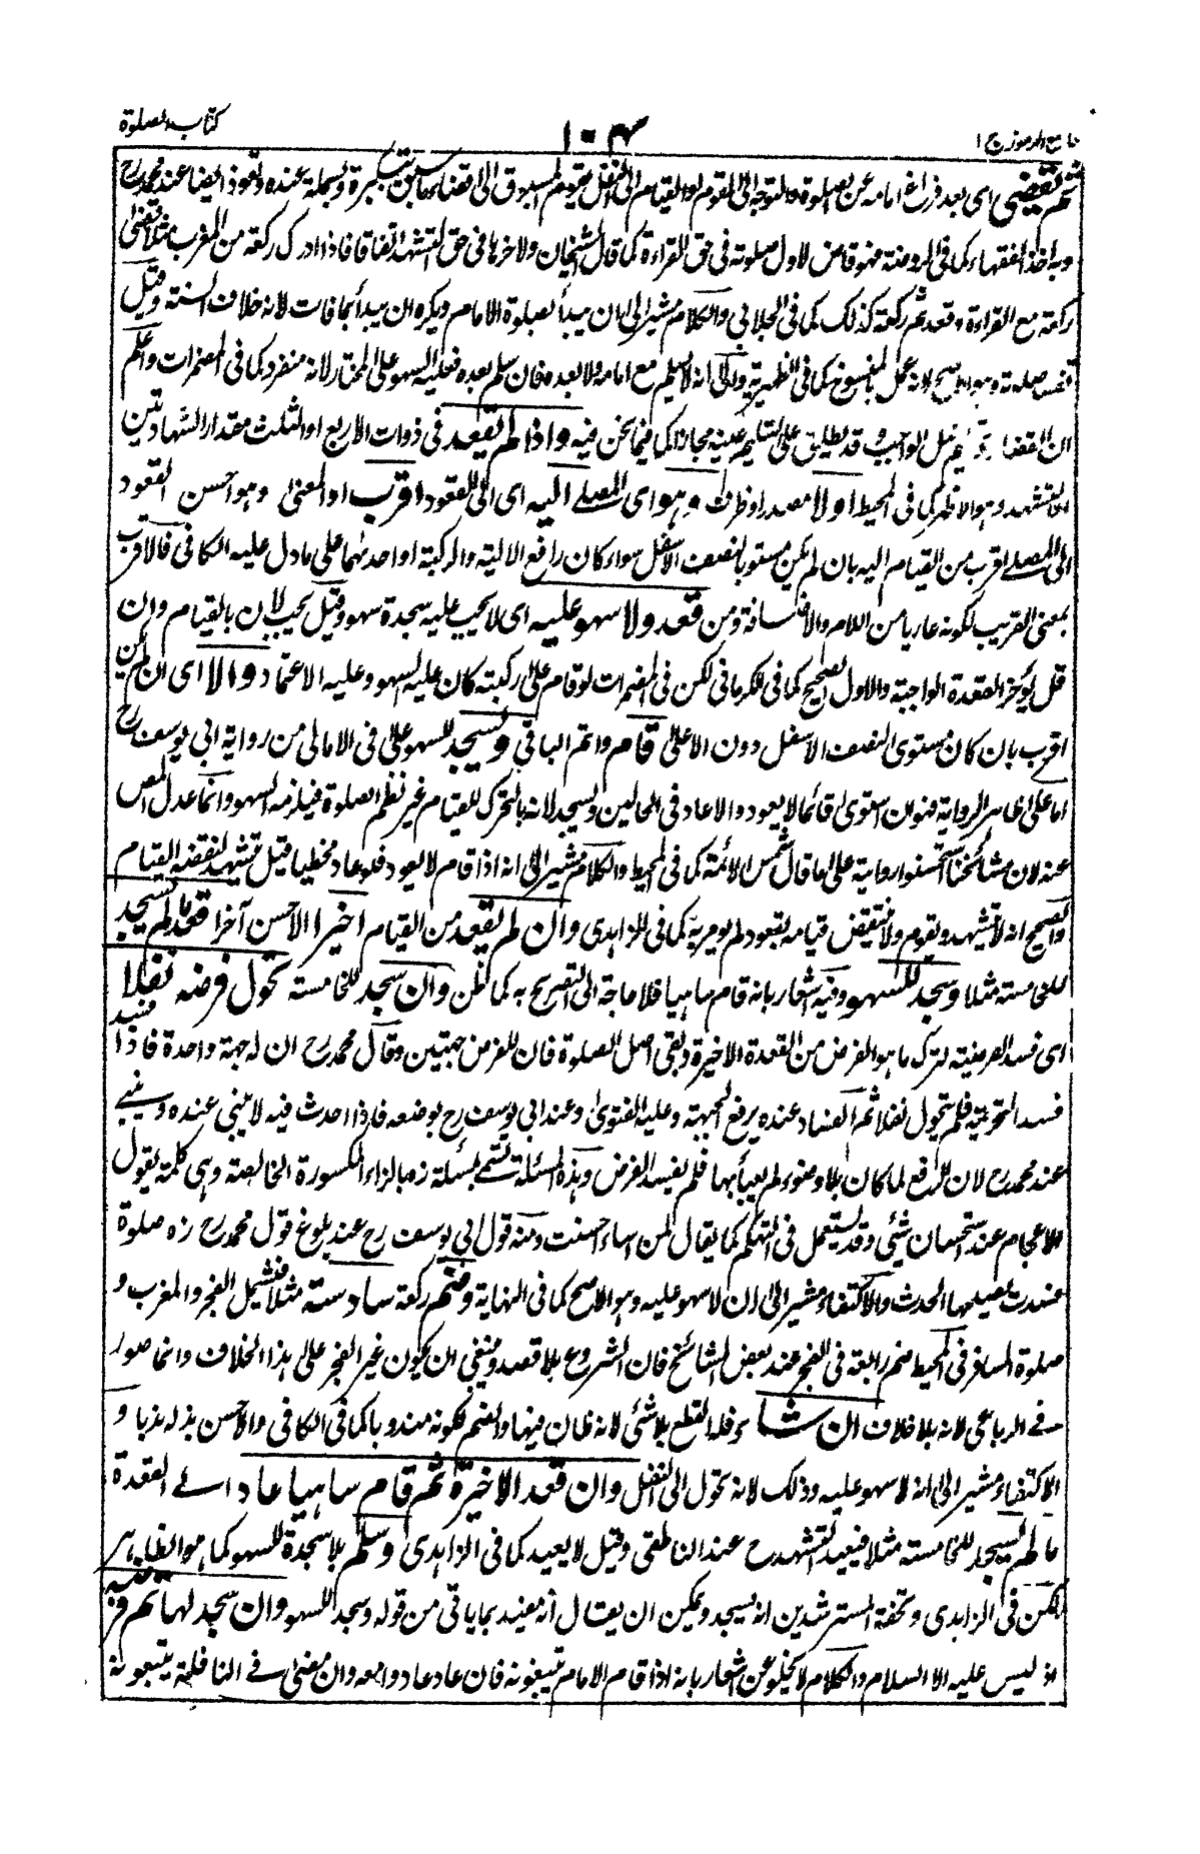 جامع الرموز ج ١
١٠٤
كتاب الصلوة
ثم يقضى اى بعد فراغ امامه عن الصلوة والتوجه الى القوم او القيام الى النفل يقوم المسبوق الى قضاء ما سبق بتكبيرة وبسملة عنده وتعوذ ايضا عند محمد رح
وبه اخذ الفقهاء كما فى الروضة فهو قاض لاول صلوته فى حق القراءة كما قال الشيخان ولاخرها فى حق التشهد اتفاقا فاذا ادرك ركعة من المغرب مثلا قضى
ركعة مع القراءة وقعد ثم ركعة كذلك كما فى الجلابى والكلام مشير الى ان يبدأ بصلوة الامام ويكره ان يبدأ بما فات لانه خلاف السنة وقيل
تفسد صلوته وهو الاصح لانه عمل بالمنسوخ كما فى الظهيرية والى انه لا يسلم مع امامه ولا بعده فان سلم بعده فعليه السهو على المختار لانه منفرد كما فى المضمرات واعلم
ان القضاء تسليم مثل الواجب وقد يطلق على تسليم عينه مجازا كما فيما نحن فيه واذا لم يقعد فى ذوات الاربع او الثلث مقدار الشهادتين
او التشهد وهو الاظهر كما فى المحيط اولا مصدر او ظرف وهو اى المصلى اليه اى الى القعود اقرب او المعنى وهو احسن القعود
الى المصلى اقرب من القيام اليه بان لم يكن مستويا النصف الاسفل سواء كان رافع الالية والركبة او احدهما على ما دل عليه الكافى فالاقرب
بمعنى القريب لكونه عاريا من اللام والاضافة ومن قعد ولا سهو عليه اى لا يجب عليه سجدة سهو وقيل يجب لان بالقيام وان
قل يؤخر القعدة الواجبة والاول الصحيح كما فى الكرمانى لكن فى المضمرات لو قام على ركبته كان عليه السهو وعليه الاعتماد والا اى ان لم يكن
اقرب بان كان مستوى النصف الاسفل دون الاعلى قام واتم الباقى وسجد للسهو على فى الامالى من رواية ابى يوسف رح
اما على ظاهر الرواية فهو ان استوى قائما لا يعود والا عاد فى الحالين ويسجد لانه بالتحرك للقيام غير نظم الصلوة فيلزمه السهو وانما عدل المص
عنه لان مشائخنا استحسنوا رواية على ما قال شمس الائمة كما فى المحيط والكلام مشير الى انه اذا قام لا يعود فلو عاد مخطيا قيل يتشهد لنقضه القيام
والصحيح انه لا يتشهد ويقوم ولا ينتقض قيامه بقعود لم يومر به كما فى الزاهدى وان لم يقعد من القيام اخيرا الاحسن آخرا قعد ما لم يسجد
للخامسة مثلا وسجد للسهو وفيه اشعار بانه قام ساهيا فلا حاجة الى التصريح به كما ظن وان سجد للخامسة تحول فرضه نفلا
اى فسد الفرضية لترك ما هو الفرض من القعدة الاخيرة ويبقى اصل الصلوة فان للفرض جهتين وقال محمد رح ان له جهة واحدة فاذا
فسد التحريمة فلم يتحول نفلا ثم الفساد عنده برفع الجبهة وعليه الفتوى وعند ابى يوسف رح بوضعه فاذا احدث فيه لا يبنى عنده ويبنى
عند محمد رح لان الرفع لما كان بلا وضوء لم يعبأ بها فلم يفسد الفرض وهذه المسئلة تسمى بمسئلة زه بالزاء المكسورة الخالصة وهى كلمة يقول
الاعجام عند استحسان شئى وقد يستعمل فى التهكم كما يقال لمن اساء احسنت ومنه قول ابى يوسف رح عند بلوغ قول محمد رح زه صلوة
فسدت يصلحها الحدث والاكتفاء مشير الى ان لا سهو عليه وهو الاصح كما فى النهاية وضم ركعة سادسة مثلا فيشمل الفجر والمغرب و
صلوة المسافر فى المحيط ضم رابعة فى الفجر عند بعض المشائخ فان الشروع بلا قصد وينبغى ان يكون غير الفجر على هذا الخلاف وانما صور
فى الرباعى لانه بلا خلاف ان شاء فله القطع بلا شئى لانه ظان فيها والضم لكونه مندوبا كما فى الكافى والاحسن بذله ندبا و
الاكتفاء مشير الى انه لا سهو عليه وذلك لانه تحول الى النفل وان قعد الاخيرة ثم قام ساهيا عاد الى القعدة
ما لم يسجد للخامسة مثلا فيعيد التشهد رح عند الناطفى وقيل لا يعيد كما فى الزاهدى وسلم بلا سجدة للسهو كما هو الظاهر
لكن فى الزاهدى وتحفة المسترشدين انه يسجد ويمكن ان يقال انه مقيد بما ياتى من قوله وسجد للسهو وان سجد لها تم فرضه
اذ ليس عليه الا السلام والكلام لا يخلو عن اشعار بانه اذا قام الامام يتبعونه فان عاد عادوا معه وان مضى فى النافلة يتبعونه